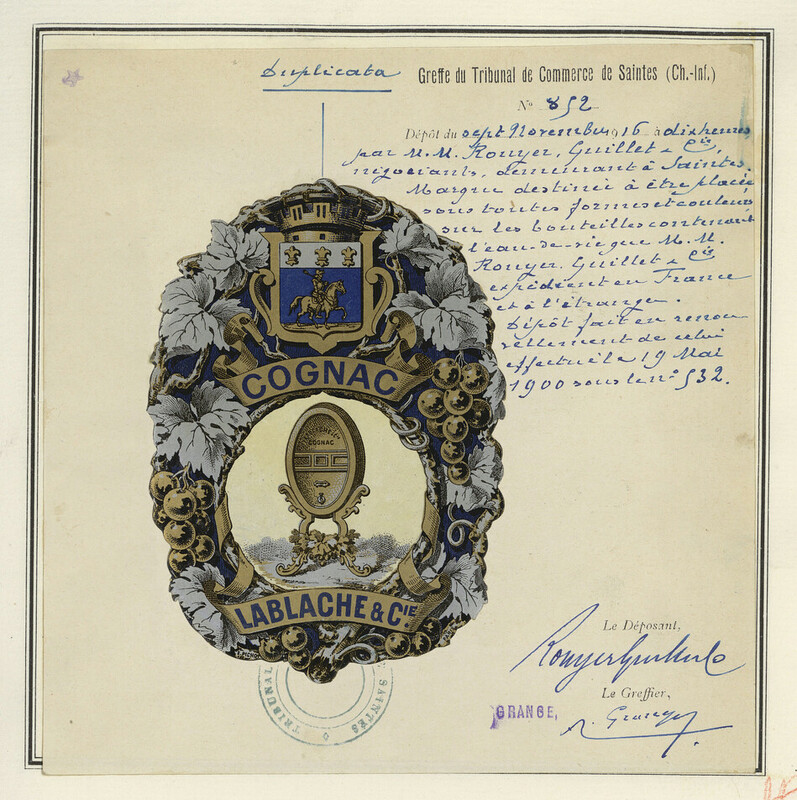 Duplicata
Greffe du Tribunal de Commerce de Saintes (Ch.-Inf.)
N° 852
Dépôt du sept Novembre 1916 à dix heures
par M.M. Rouyer, Guillet & Cie,
négociants, demeurant à Saintes.
Marque destinée à être placée
sous toutes formes et couleurs
sur les bouteilles contenant
l'eau-de-vie que M.M.
Rouyer Guillet & Cie
expédient en France
et à l'étranger.
Dépôt fait en renou
vellement de celui
effectué le 19 Mai
1900 sous le n° 532.
COGNAC
COGNAC
LABLACHE & CIE.
TRIBUNAL
SAINTES
Le Déposant,
Rouyer Guillet & Co
Le Greffier,
GRANGE,
Grange